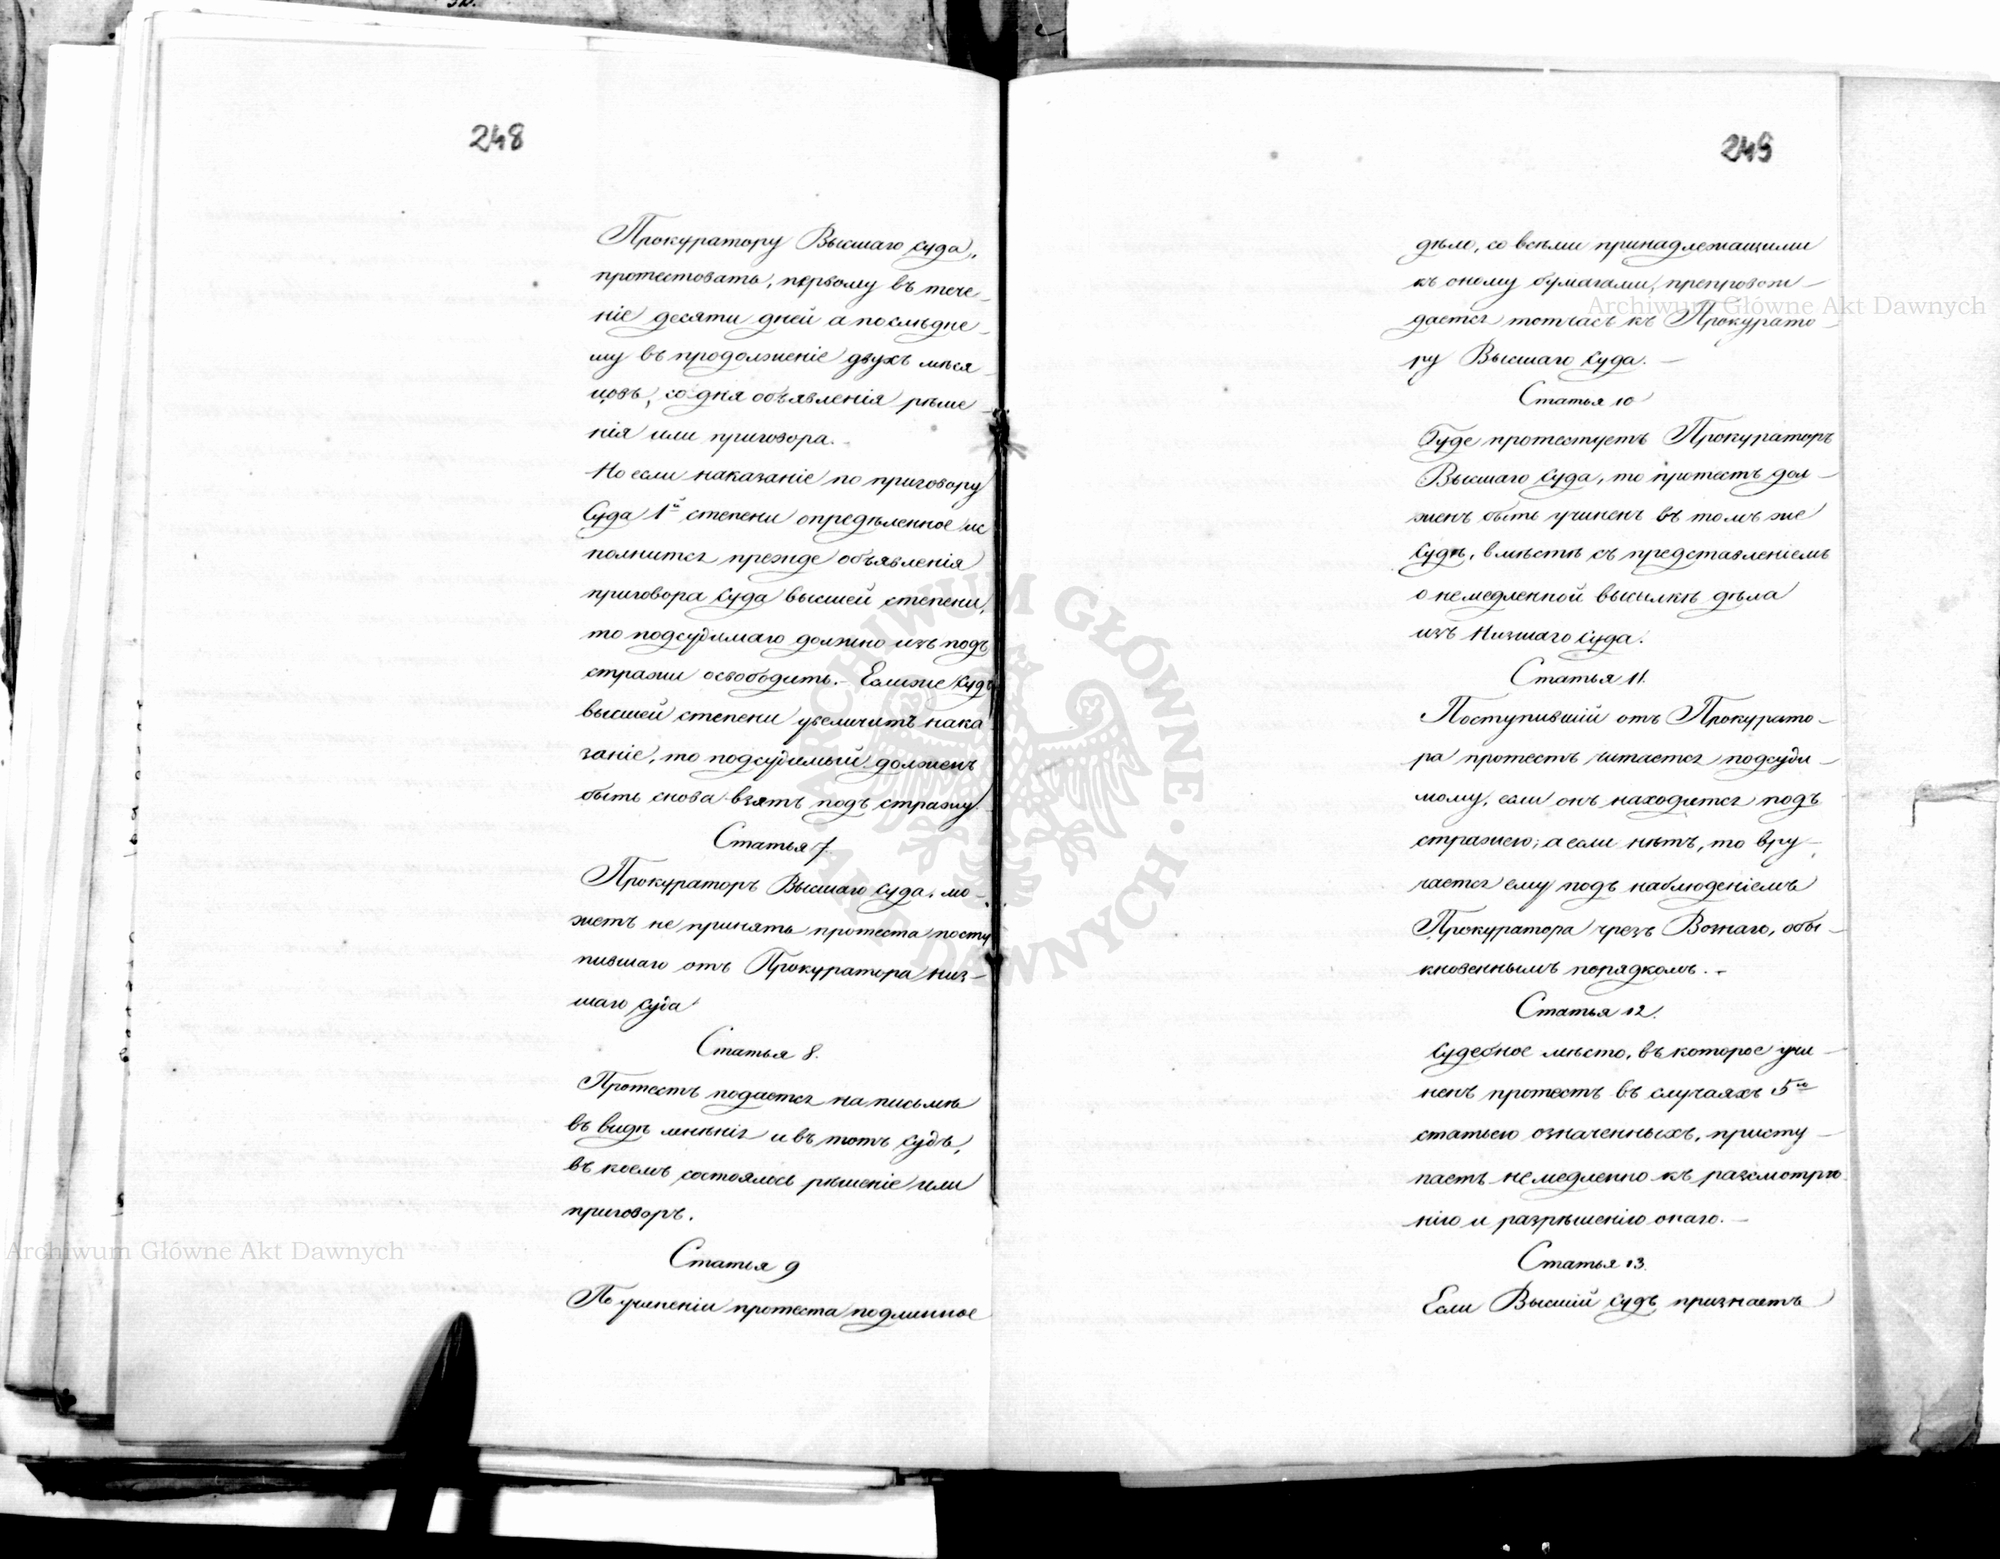 248
Прокуратору Высшаго Суда,
протестовать, первому въ тече-
ніе десяти дней а послѣдне-
му въ продолженіе двухъ мѣся-
цовъ, со дня объявленія рѣше-
нія или приговора.
Но если наказаніе по приговору
Суда 1й степени опредѣленное ис
полнится прежде объявленія
приговора Суда высшей степени,
то подсудимаго должно изъ подъ
стражи освободить. - Если же Судъ
высшей степени увеличитъ нака
заніе, то подсудимый долженъ
быть снова взятъ подъ стражу.
Статья 7.
Прокураторъ Высшаго Суда, мо-
жетъ не принять протеста посту
пившаго отъ Прокуратора Низ-
шаго Суда
Статья 8.
Протестъ подается на письмѣ
въ видѣ мнѣнія и въ тотъ Судъ,
въ коемъ состоялось рѣшеніе или
приговоръ.
Статья 9
По учиненіи протеста подлинное
249
дѣло, со всѣми принадлежащими
къ оному бумагами, препровож-
дается тотчасъ къ Прокурато-
ру Высшаго Суда. -
Статья 10
Буде протестуетъ Прокураторъ
Высшаго Суда, то протестъ дол-
женъ быть учиненъ въ томъ же
Судѣ, вмѣстѣ съ представленіемъ
о немедленной высылкѣ дѣла
изъ Низшаго Суда.
Статья 11.
Поступившій отъ Прокурато-
ра протестъ читается подсуди-
мому, если онъ находится подъ
стражею; а если нѣтъ, то вру-
чается ему подъ наблюденіемъ
Прокуратора чрезъ Вознаго, обы-
кновеннымъ порядкомъ. -
Статья 12.
Судебное мѣсто, въ которое учи-
ненъ протестъ въ случаяхъ 5ю
статьею означенныхъ, присту-
паетъ немедленно къ разсмотрѣ-
нію и разрѣшенію онаго. -
Статья 13.
Если Высшій Судъ признаетъ
Archiwum Główne Akt Dawnych
Archiwum Główne Akt Dawnych
ARCHIWUM GŁÓWNE · AKT DAWNYCH ·